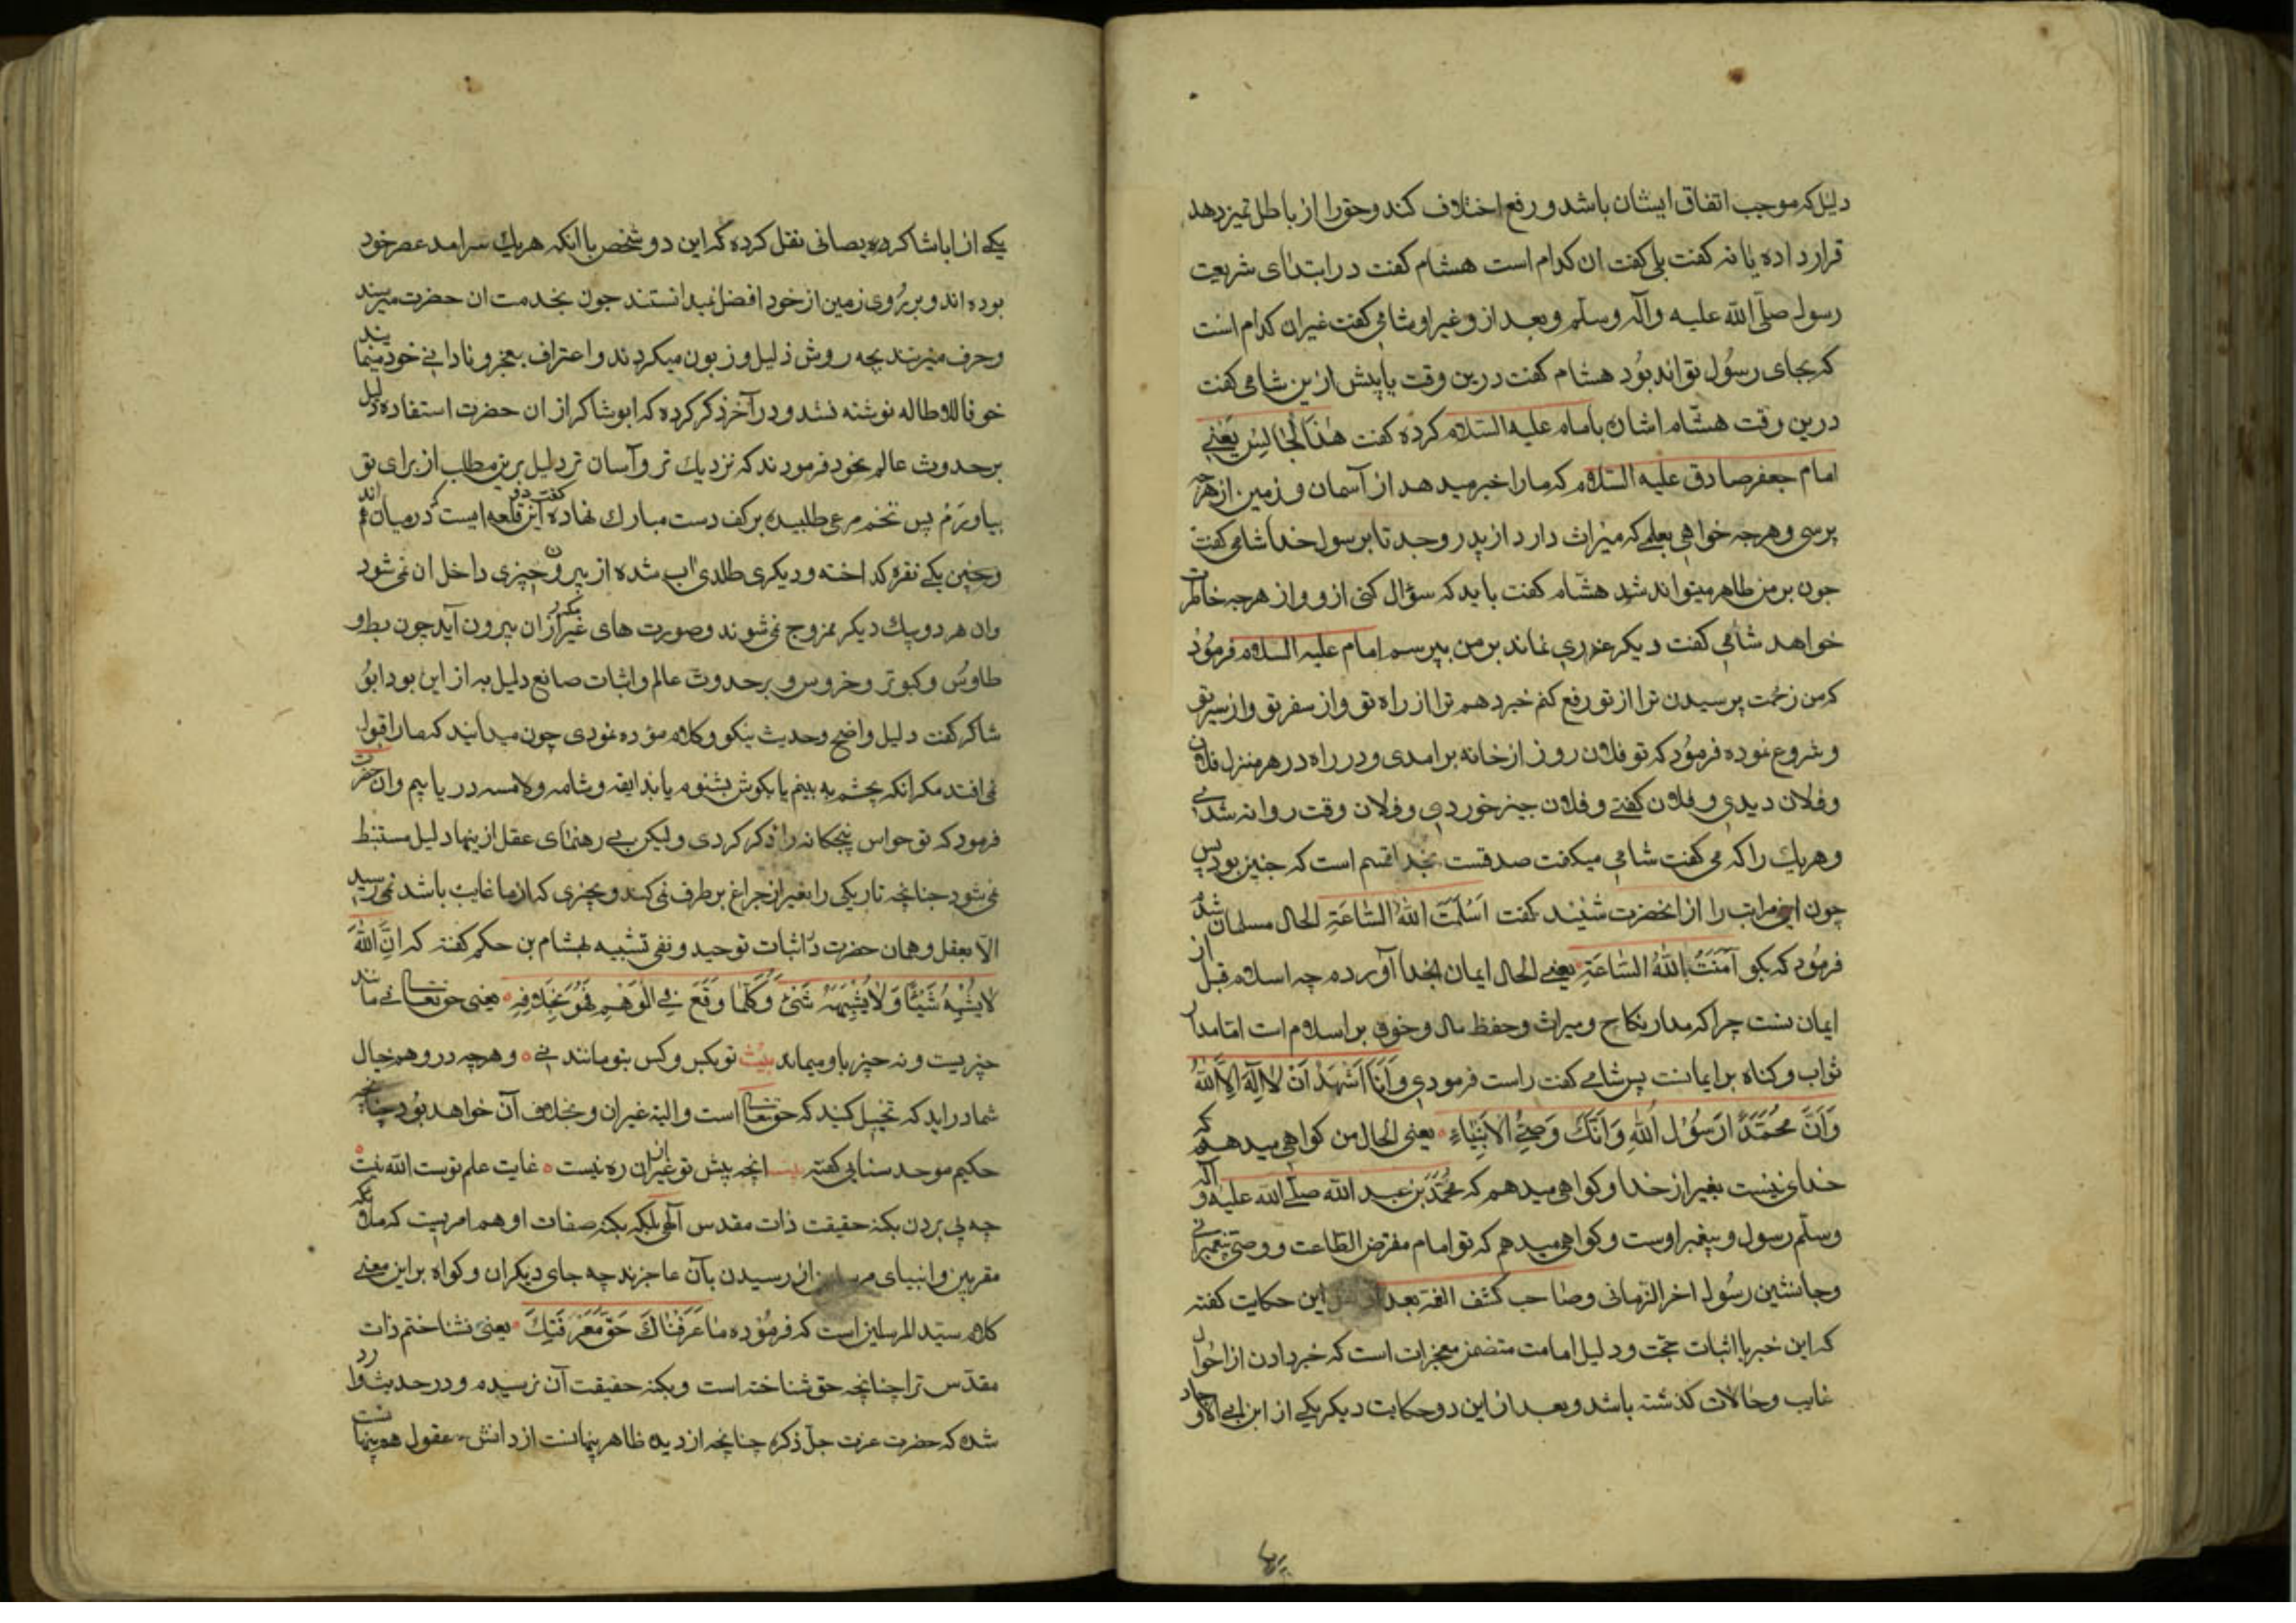 دلیل که موجب اتفاق ایشان باشد و رفع اختلاف کند و حق را از باطل تمیز دهد
قرار داده یا نه کفت بلی کفت ان کدام است هشام کفت در ابتدای شریعت
رسول صلّی الله علیه وآله وسلّم وبعد از و غیر او شامی کفت غیر ان کدام است
که بجای رسُول تواند بُود هشام کفت درین وقت یا پیش ازین شامی کفت
درین وقت هشام اشاره بامام علیه السّلام کرده کفت هٰذَا الْجٰالِسْ یَعْنے
امام جعفر صادق علیه السّلام که ما را خبر میدهد از آسمان و زمین از هرچه
پرسی و هرچه خواهی بعلمی که میراث دارد از پدر و جد تا برسول خدا شامی کفت
چون بر من ظاهر میتواند شد هشام کفت باید که سؤال کنی ازو و از هرچه خاطرت
خواهد شامی کفت دیکر عذری نماند بر من بپرسم امام علیه السلام فرمُود
که من زحمت پرسیدن ترا از تو رفع کنم خبر دهم ترا از راه تو و از سفر تو و از سیر تو
و شروع نموده فرمُود که تو فلان روز از خانه برامدی و در راه در هر منزل فلان
و فلان دیدی و فلان کفتے و فلان چیز خوردی و فلان وقت روانه شدی
و هریک را که می کفت شامی میکفت صدقت بخدا قسم است که چنین بود پس
چون این مراتب را از انحضرت شنید کفت اَسْلَمْتُ اللهَ السّٰاعَةِ الحال مسلمان شدم
فرمُود که بکو آمَنْتُ بِاللهِ السّٰاعَةِ یعنے الحال ایمان بخدا آورده چه اسلام قبل از
ایمان ست چرا که مدار نکاح و میراث و حفظ مال و خون بر اسلام ات اما مدار
ثواب و کناه بر ایمانست پس شامی کفت راست فرمودی وَ اَنَا اَشْهَدُ اَنْ لٰا اِلٰهَ اِلَّا اللهُ
وَاَنَّ مُحَمَّدًا رَسُوْلُ اللهِ وَاَنَّكَ وَصِیُّ الْاَنْبِیٰاءِ یعنی الحال من کواهی میدهم که
خدای نیست بغیر از خدا و کواهی میدهم که مُحَمَّد بن عبد الله صلّی الله علیه و آله
وسلّم رسول و پیغمبر اوست و کواهی میدهم که تو امام مفترض الطّاعت و وصیّ پیغمبرانی
و جانشین رسُول اخر الزمانی و صاحب کشف الغمّه بعد از نقل این حکایت کفته
که این خبر با اثبات حجّت و دلیل امامت متضمن معجزات است که خبر دادن از احوال
غایب و حالات کذشته باشد و بعد از این دو حکایت دیکر یکی از ابن ابی العوجاد
یکے از اباشاکر دیصانی نقل کرده که این دو شخص با انکه هریك سرامد عصر خود
بوده اند و بر رُوی زمین از خود افضل نمیدانستند چون بخدمت ان حضرت میرسند
و حرف میزنند بچه روش ذلیل و زبون میکردند و اعتراف بعجز و نادانے خود مینمایند
خوفا للاطاله نوشته نشد و در آخر ذکر کرده که ابوشاکر از ان حضرت استفاده دلیل
بر حدوث عالم نمود فرمودند که نزدیك تر و آسان تر دلیل برین مطلب از برای تو
بیاورم پس تخم مرغی طلبیده بر کف دست مبارك نهاده کفت این قلعه ایست که در میان
وچنین یکے نقره کداخته و دیکری طلای اب شده از بیرون چیزی داخل ان نمی شود
وان هر دو بیك دیکر ممزوج نمی شوند و صورت های غیر مکرر از ان بیرون آید چون بط و
طاوس و کبوتر و خروس و بر حدوث عالم و اثبات صانع دلیل به از این بود ابو
شاکر کفت دلیل واضح و حدیث نیکو و کلام مؤده نمودی چون میدانید که ما را قبول
نمی افتد مکر انکه بچشم به بینم یا بکوش بشنوم یا بذایقه و شامه و لامسه دریابیم وان حضرت
فرمود که تو حواس پنجکانه را ذکر کردی و لیکن بے رهنمای عقل ازینها دلیل مستنبط
نمی شود چنانچه تاریکی را بغیر از چراغ بر طرف نمی کند و بچیزی که از ما غایب باشد نمی رسید
الّا بعقل و همان حضرت در اثبات توحید و نفی تشبیه بهشام بن حکم کفته که اِنَّ اللهَ
لٰا یُشْبِهُ شَیْئًا وَ لٰا یُشْبِهُهُ شَیْءٌ وَ کُلَّمٰا وَقَعَ فِی الْوَهْمِ فَهُوَ بِخِلٰافِهِ یعنی حق تعالے نے مانند
چیزیست و نه چیز باو میماند بیت تو بکس و کس بتو مانند نی و هرچه در وهم و خیال
شما دراید که تخیل کنید که حق تعالے است و البته غیر ان و بخلاف آن خواهد بود چنانچه
حکیم موحد سنایی کفته بیت انچه پیش تو غیر از ان ره نیست غایت علم توست الله نیست
چه پی بردن بکنه حقیقت ذات مقدس آلهی بلکه بکنه صفات او هم امریست که ملائکه
مقربین و انبیای مرسلین از رسیدن بآن عاجزند چه جای دیکران و کواه بر این معنے
کلام سیّد المرسلین است که فرموده مٰا عَرَفْنٰاكَ حَقَّ مَعْرِفَتِكَ یعنی نشناختم ذات
مقدّس ترا چنانچه حق شناختن است و بکنه حقیقت آن نرسیدم و در حدیث وارد
شده که حضرت عزت جلّ ذکره چنانچه از دیده ظاهر پنهانست از دانش عقول هم پنهانست